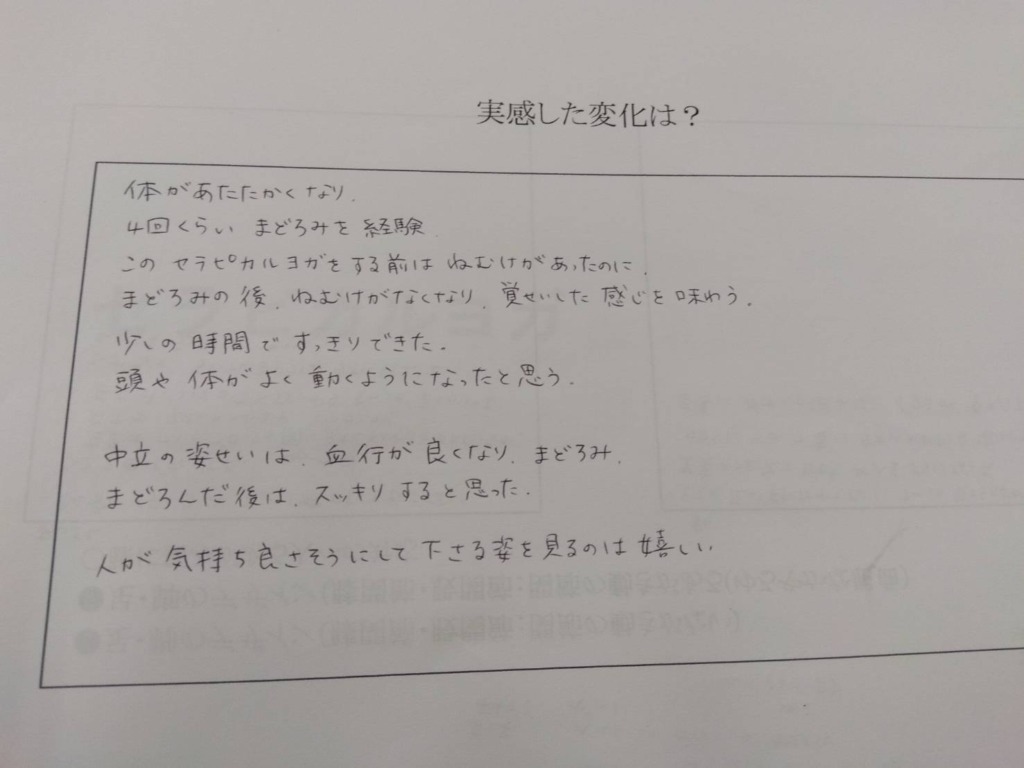 実感した変化は？
体があたたかくなり、
4回くらい まどろみを 経験
この セラピカルヨガをする前は ねむけがあったのに、
まどろみの後、ねむけがなくなり、覚せいした 感じを味わう。
少しの時間で すっきりできた。
頭や 体が よく 動くようになったと思う。
中立の 姿せいは、血行が 良くなり、まどろみ、
まどろんだ後は、スッキリ すると思った。
人が 気持ち良さそうにして 下さる姿を見るのは嬉しい